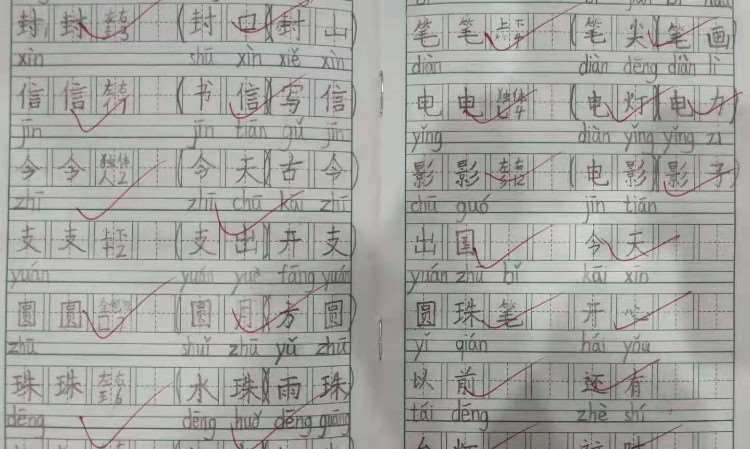 封 封 左右 (封 口)(封 山)
xìn shū xìn xiě xìn
信 信 左右 (书 信)(写 信)
jīn jīn tiān gǔ jīn
今 今 独体 人 2 (今 天)(古 今)
zhī zhī chū kāi zhī
支 支 上下 十 2 (支 出 开 支
yuán yuán yuè fāng yuán
圆 圆 (圆 月)方 圆
zhū shuǐ zhū yǔ zhū
珠 珠 左右 王 6 (水 珠)(雨 珠
dēng dēng huǒ dēng guāng
笔 笔 上下 (笔 尖)(笔 画
diàn diàn dēng diàn lì
电 电 独体 (电 灯)(电 力)
yǐng diàn yǐng yǐng zi
影 影 左右 (电 影)(影 子)
chū guó jīn tiān
出 国 今 天
yuán zhū bǐ kāi xīn
圆 珠 笔 开 心
yǐ qián hái yǒu
以 前 还 有
tái dēng zhè shí